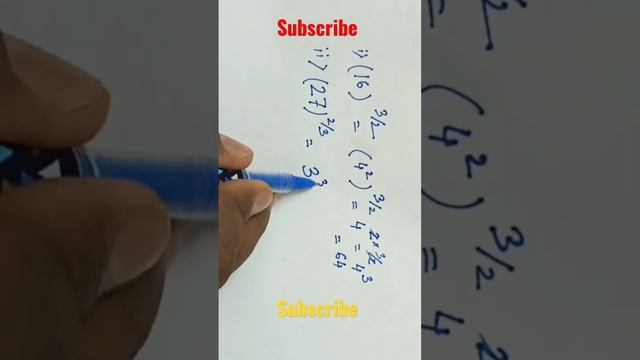 Subscribe
i> (16)^3/2 = (4²)^3/2 = 4^2×3/2 = 4³
= 64
ii> (27)^2/3 = 3³
Subscribe